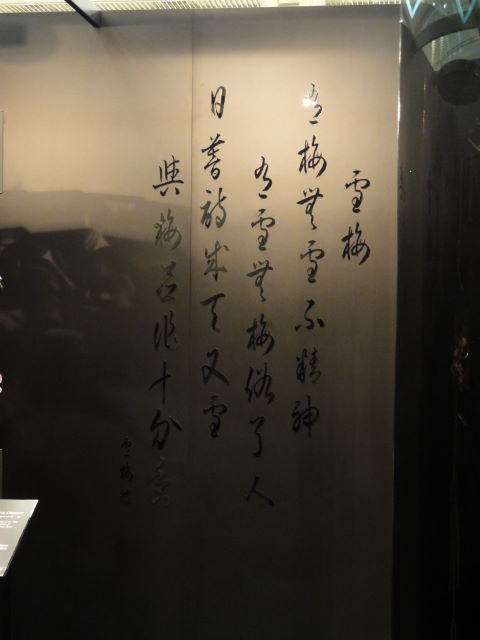 雪梅
有梅無雪不精神
有雪無梅俗了人
日暮詩成天又雪
與梅並作十分春
雪梅